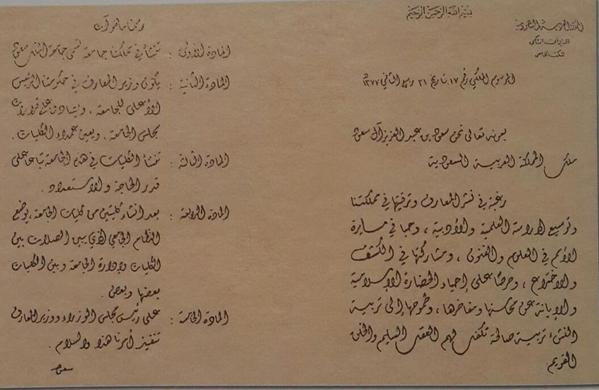 بسم الله الرحمن الرحيم
المملكة العربية السعودية
الديوان الملكي
المرسوم الملكي رقم ١٧ تاريخ ٢١ ربيع الثاني ١٣٧٧
بعونه تعالى نحن سعود بن عبد العزيز آل سعود
ملك المملكة العربية السعودية
رغبة في نشر المعارف وترقيتها في مملكتنا
وتوسيع الدراسة العلمية والأدبية ، وحبا في مسايرة
الأمم في العلوم والفنون ، ومشاركتها في الكشف
والاختراع ، وحرصا على إحياء الحضارة الإسلامية
والإبانة عن محاسنها ومفاخرها ، وطموحها إلى تربية
النشء تربية صالحة تكفل لهم العقل السليم والخلق
القويم
رسمنا بما هو آت
المادة الأولى : تنشأ في مملكتنا جامعة تسمى جامعة الملك سعود
المادة الثانية : يكون وزير المعارف في حكومتنا الرئيس
الأعلى للجامعة ، ويصادق على قرارات
مجلس الجامعة . ويعين عمداء الكليات .
المادة الثالثة : تنشأ الكليات في هذه الجامعة تباعا على
قدر الحاجة والاستعداد .
المادة الرابعة : بعد إنشاء كليتين من كليات الجامعة ، يوضع
النظام الجامعي الذي يبين الصلات بين
الكليات وإدارة الجامعة وبين الكليات
بعضها وبعض .
المادة الخامسة : على رئيس مجلس الوزراء ووزير المعارف
تنفيذ أمرنا هذا والسلام .
سعود